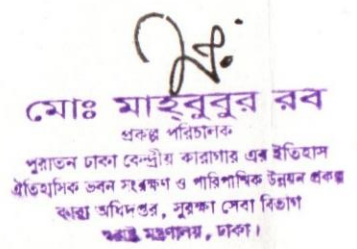 মোঃ মাহ্‌বুবুর রব
প্রকল্প পরিচালক
পুরাতন ঢাকা কেন্দ্রীয় কারাগার এর ইতিহাস
ঐতিহাসিক ভবন সংরক্ষণ ও পারিপার্শ্বিক উন্নয়ন প্রকল্প
কারা অধিদপ্তর, সুরক্ষা সেবা বিভাগ
মন্ত্রণালয়, ঢাকা।